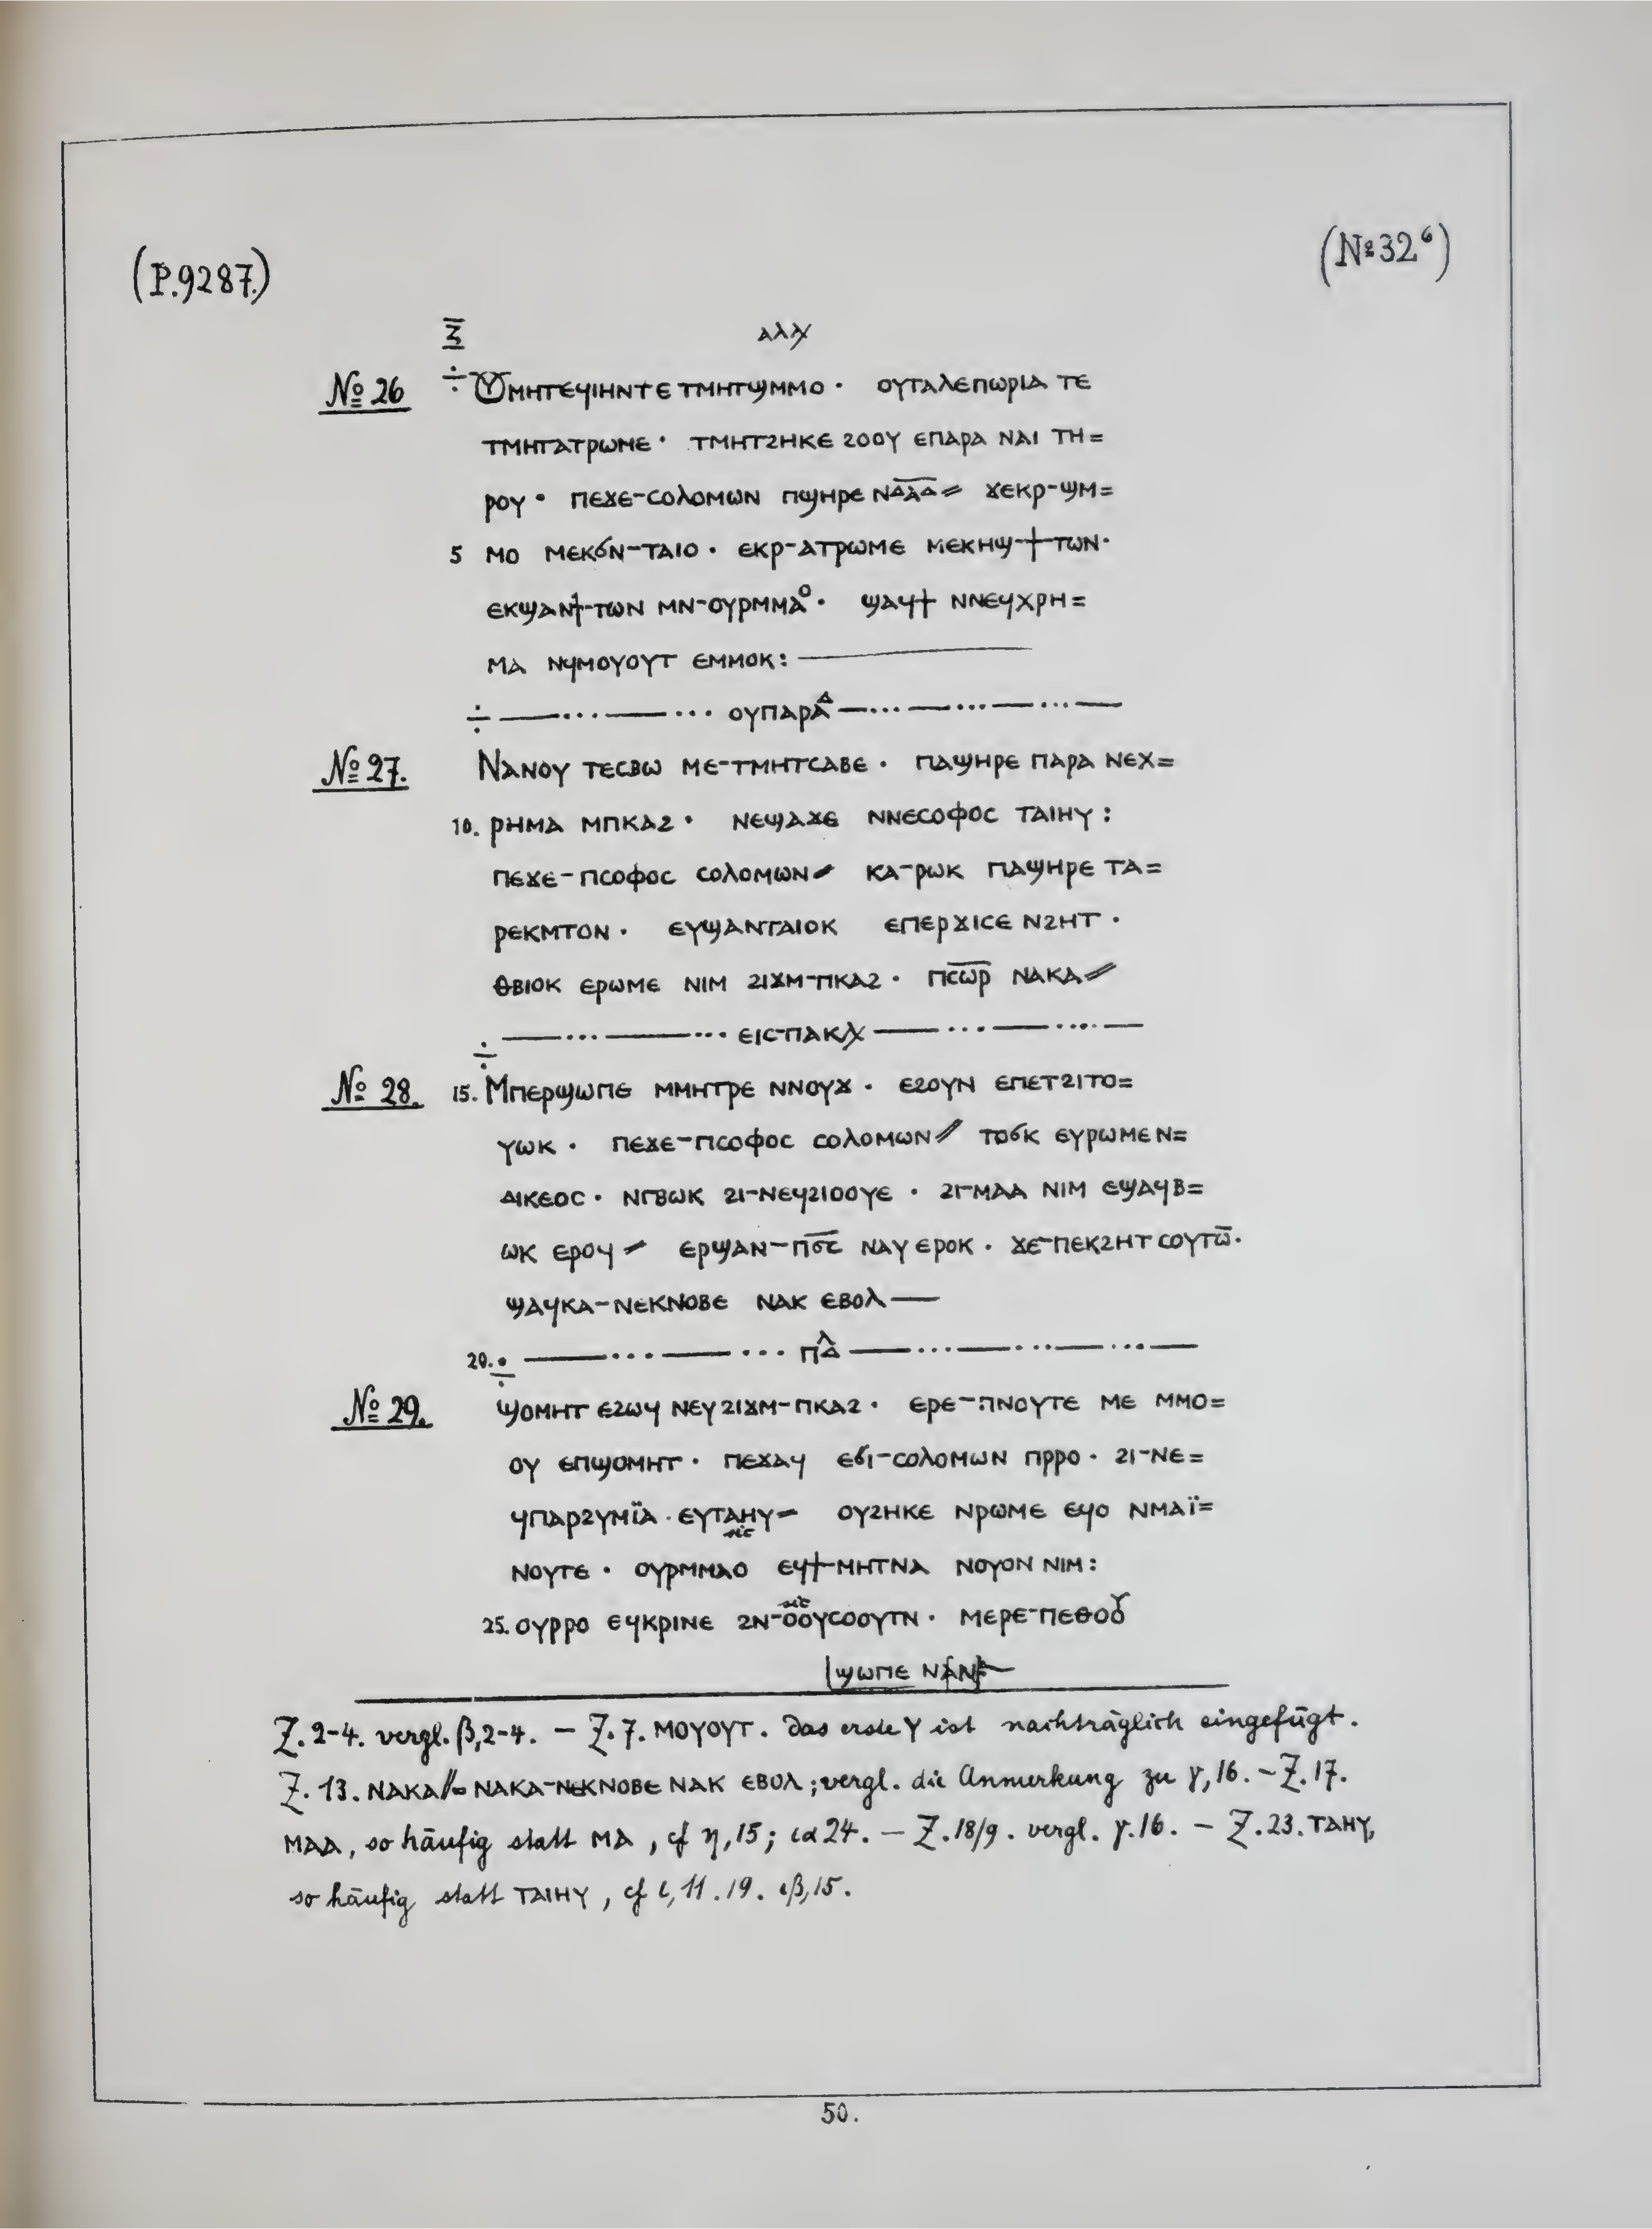 (P.9287.)
(№32⁶)
ⲍ̅ ⲁⲗⲗ
№ 26 ÷ ⲞⲨⲙⲏⲧⲉϥⲓⲏⲛⲧⲉ ⲧⲙⲏⲧϣⲙⲙⲟ · ⲟⲩⲧⲁⲗⲉⲡⲱⲣⲓⲁ ⲧⲉ
ⲧⲙⲏⲧⲁⲧⲣⲱⲙⲉ · ⲧⲙⲏⲧϩⲏⲕⲉ ϩⲟⲟⲩ ⲉⲡⲁⲣⲁ ⲛⲁⲓ ⲧⲏ=
ⲣⲟⲩ · ⲡⲉϫⲉ-ⲥⲟⲗⲟⲙⲱⲛ ⲡϣⲏⲣⲉ ⲛⲇ̅ⲁ̅ⲇ̅⸗ ϫⲉⲕⲣ-ϣⲙ=
5 ⲙⲟ ⲙⲉⲕϭⲛ-ⲧⲁⲓⲟ · ⲉⲕⲣ-ⲁⲧⲣⲱⲙⲉ ⲙⲉⲕⲏϣ-ϯ-ⲧⲱⲛ·
ⲉⲕϣⲁⲛϯ-ⲧⲱⲛ ⲙⲛ-ⲟⲩⲣⲙⲙⲁⲟ · ϣⲁϥϯ ⲛⲛⲉϥⲭⲣⲏ=
ⲙⲁ ⲛϥⲙⲟⲩⲟⲩⲧ ⲉⲙⲙⲟⲕ: ———
÷ —···—··· ⲟⲩⲡⲁⲣⲁⲇ —···—···—···—
№ 27. Ⲛⲁⲛⲟⲩ ⲧⲉⲥⲃⲱ ⲙⲉ-ⲧⲙⲏⲧⲥⲁⲃⲉ · ⲡⲁϣⲏⲣⲉ ⲡⲁⲣⲁ ⲛⲉⲭ=
10. ⲣⲏⲙⲁ ⲙⲡⲕⲁϩ · ⲛⲉϣⲁϫⲉ ⲛⲛⲉⲥⲟⲫⲟⲥ ⲧⲁⲓⲏⲩ :
ⲡⲉϫⲉ-ⲡⲥⲟⲫⲟⲥ ⲥⲟⲗⲟⲙⲱⲛ⸗ ⲕⲁ-ⲣⲱⲕ ⲡⲁϣⲏⲣⲉ ⲧⲁ=
ⲣⲉⲕⲙⲧⲟⲛ · ⲉⲩϣⲁⲛⲧⲁⲓⲟⲕ ⲉⲡⲉⲣϫⲓⲥⲉ ⲛϩⲏⲧ ·
ⲑⲃⲓⲟⲕ ⲉⲣⲱⲙⲉ ⲛⲓⲙ ϩⲓϫⲙ-ⲡⲕⲁϩ · ⲡⲥ̅ⲱ̅ⲣ̅ ⲛⲁⲕⲁ⸗
÷ —···—··· ⲉⲓⲥ-ⲡⲁⲕⲗ —···—···—
№ 28. 15. Ⲙⲡⲉⲣϣⲱⲡⲉ ⲙⲙⲏⲧⲣⲉ ⲛⲛⲟⲩϫ · ⲉϩⲟⲩⲛ ⲉⲡⲉⲧϩⲓⲧⲟ=
ⲩⲱⲕ · ⲡⲉϫⲉ-ⲡⲥⲟⲫⲟⲥ ⲥⲟⲗⲟⲙⲱⲛ⸗ ⲧⲟϭⲕ ⲉⲩⲣⲱⲙⲉ ⲛ=
ⲇⲓⲕⲉⲟⲥ · ⲛⲅⲃⲱⲕ ϩⲓ-ⲛⲉϥϩⲓⲟⲟⲩⲉ · ϩⲓ-ⲙⲁⲁ ⲛⲓⲙ ⲉϣⲁϥⲃ=
ⲱⲕ ⲉⲣⲟϥ⸗ ⲉⲣϣⲁⲛ-ⲡϭ̅ⲥ̅ ⲛⲁⲩ ⲉⲣⲟⲕ · ϫⲉ-ⲡⲉⲕϩⲏⲧ ⲥⲟⲩⲧⲱ̅·
ϣⲁϥⲕⲁ-ⲛⲉⲕⲛⲟⲃⲉ ⲛⲁⲕ ⲉⲃⲟⲗ —
20. ÷ —···—··· ⲡⲁⲗ —···—···—···—
№ 29. ϣⲟⲙⲏⲧ ⲉϩⲱϥ ⲛⲉⲩϩⲓϫⲙ-ⲡⲕⲁϩ · ⲉⲣⲉ-ⲡⲛⲟⲩⲧⲉ ⲙⲉ ⲙⲙⲟ=
ⲟⲩ ⲉⲡϣⲟⲙⲏⲧ · ⲡⲉϫⲁϥ ⲉϭⲓ-ⲥⲟⲗⲟⲙⲱⲛ ⲡⲣⲣⲟ · ϩⲓ-ⲛⲉ=
ϥⲡⲁⲣϩⲩⲙⲓ̈ⲁ · ⲉⲩⲧⲁⲏⲩ⸗ ⲟⲩϩⲏⲕⲉ ⲛⲣⲱⲙⲉ ⲉϥⲟ ⲛⲙⲁⲓ̈=
sic
ⲛⲟⲩⲧⲉ · ⲟⲩⲣⲙⲙⲁⲟ ⲉϥϯ-ⲙⲏⲧⲛⲁ ⲛⲟⲩⲟⲛ ⲛⲓⲙ:
sic
25. ⲟⲩⲣⲣⲟ ⲉϥⲕⲣⲓⲛⲉ ϩⲛ-ⲟⲟⲩⲥⲟⲟⲩⲧⲛ · ⲙⲉⲣⲉ-ⲡⲉⲑⲟⲟⲩ
ϣⲱⲡⲉ
Z. 2-4. vergl. β, 2-4. — Z. 7. ⲙⲟⲩⲟⲩⲧ. Das erste ⲩ ist nachträglich eingefügt.
Z. 13. ⲛⲁⲕⲁ⸗ ⲛⲁⲕⲁ-ⲛⲉⲕⲛⲟⲃⲉ ⲛⲁⲕ ⲉⲃⲟⲗ; vergl. die Anmerkung zu γ, 16. — Z. 17.
ⲙⲁⲁ, so häufig statt ⲙⲁ, cf η, 15; ια 24. — Z. 18/9. vergl. γ. 16. — Z. 23. ⲧⲁⲏⲩ,
so häufig statt ⲧⲁⲓⲏⲩ, cf ι, 11. 19. ιβ, 15.
50.